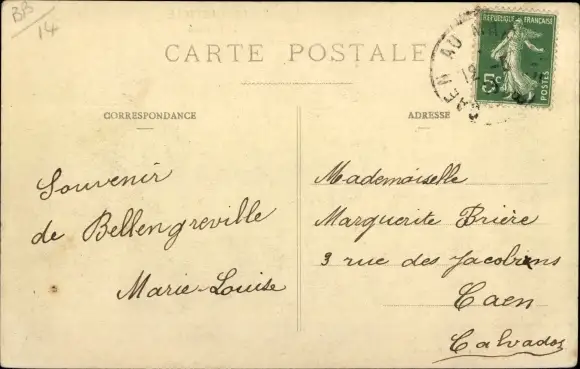 BB
14
CARTE POSTALE
REPUBLIQUE FRANÇAISE
5c
POSTES
CAEN AU
CORRESPONDANCE
ADRESSE
Souvenir
de Bellengreville
Marie-Louise
Mademoiselle
Marguerite Brière
3 rue des Jacobins
Caen
Calvados